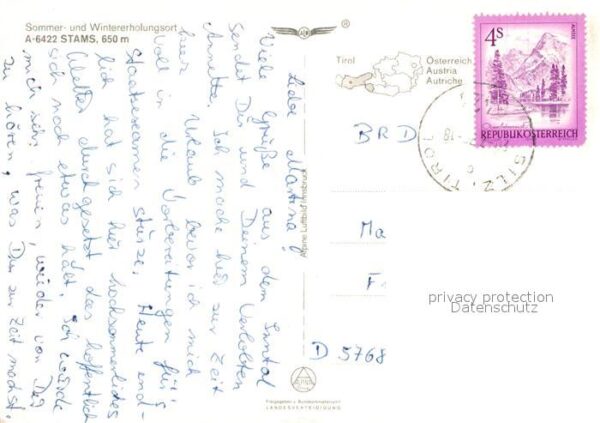 Sommer- und Wintererholungsort
A-6422 STAMS, 650 m
Liebe Martina!
Viele Grüße aus dem Inntal
sendet Dir und Deinem Verlobten
Annette. Ich mache hier zur Zeit
Urlaub bevor ich mich
voll in die Vorbereitungen für's
Staatsexamen stürze. Heute end-
lich hat sich hier hochsommerliches
Wetter durchgesetzt das hoffentlich
sich noch etwas hält. Ich würde
mich sehr freuen, wieder von Dir
zu hören, was Du zur Zeit machst.
hier
Alpine Luftbild Innsbruck
®
Tirol
Österreich
Austria
Autriche
4S
REPUBLIK ÖSTERREICH
SILZ, TIROL
18
BRD
Ma
F
D 5768
privacy protection
Datenschutz
Freigegeben v. Bundesministerium f.
LANDESVERTEIDIGUNG